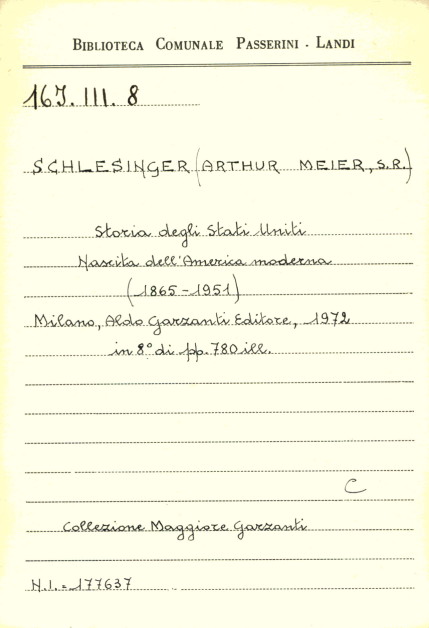 BIBLIOTECA COMUNALE PASSERINI - LANDI
16J. III. 8
SCHLESINGER (ARTHUR MEIER, S.R.)
Storia degli Stati Uniti
Nascita dell'America moderna
(1865-1951)
Milano, Aldo Garzanti Editore, 1972
in 8° di pp. 780 ill.
C
Collezione Maggiore Garzanti
N.I. = 177637